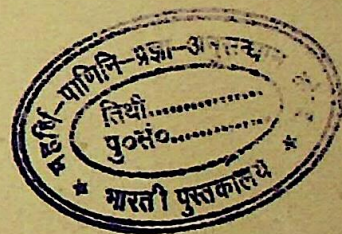 महर्षि-पाणिनि-प्रज्ञा-
तिथौ..............
पु०सं०..............
* भारती पुस्तकालय *